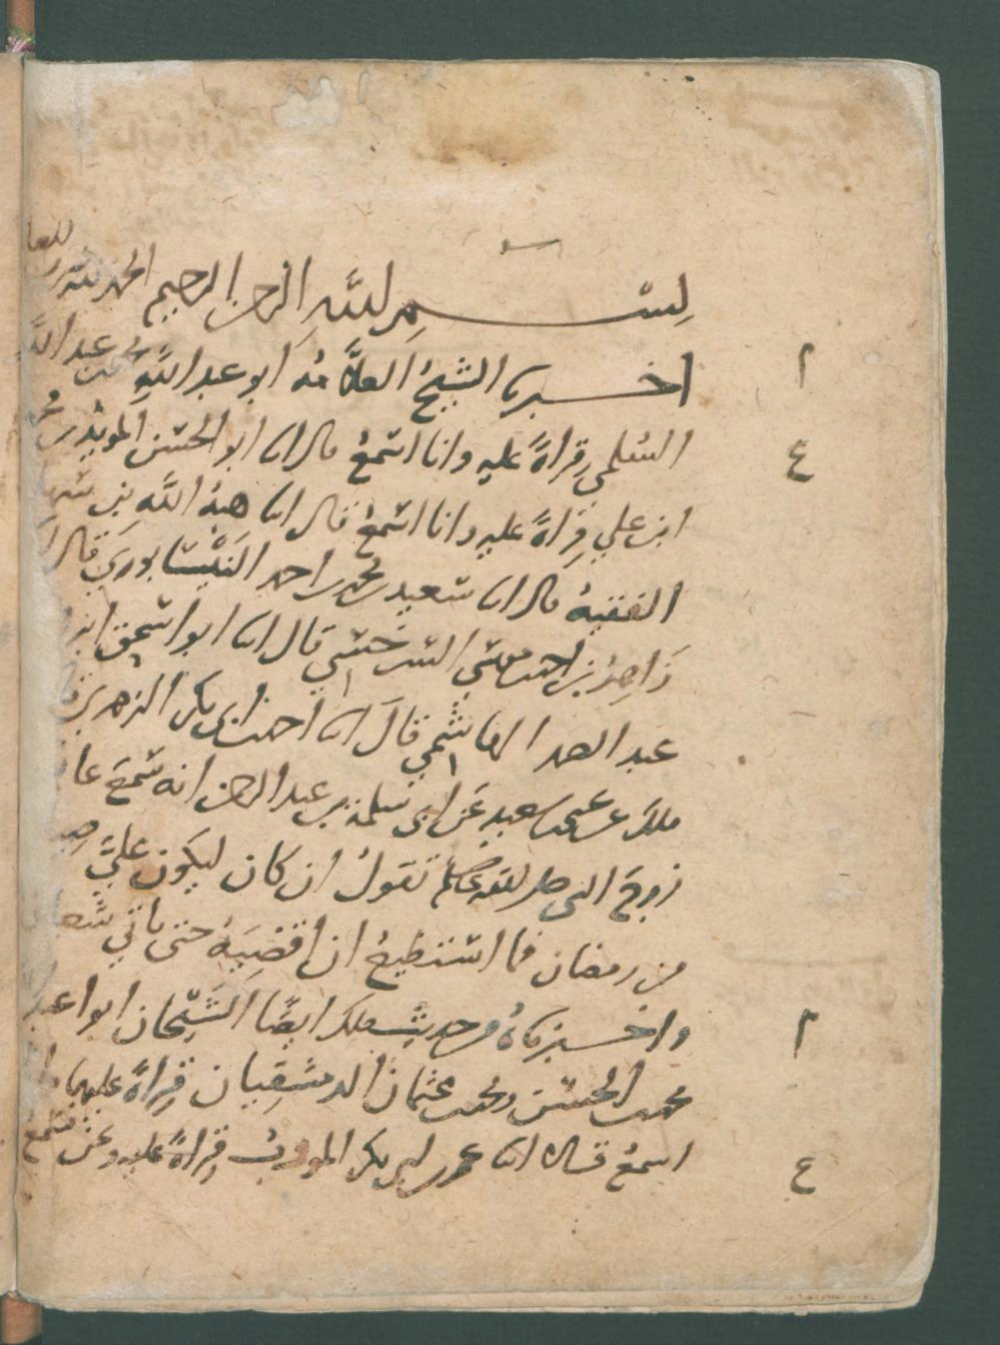 بسم الله الرحمن الرحيم الحمد لله رب
اخبرنا الشيخ العلامة ابو عبد الله محمد بن عبد الله
السلمي قراةً عليه وانا اسمع قال انا ابو الحسن المويد بن محمد
ابن علي قراةً عليه وانا اسمع قال انا هبة الله بن سهل
الفقيه قال انا سعيد بن محمد بن احمد النيسابوري قال انا
زاهر بن احمد السرخسي قال انا ابو اسحق ابرهيم بن
عبد الصمد الهاشمي قال انا احمد بن ابي بكر الزهري
ملك عن يحيى بن سعيد عن ابي سلمة بن عبد الرحمن انه سمع
زوج النبي صلى الله عليه وسلم تقول ان كان ليكون علي
من رمضان فما استطيع ان اقضيه حتى ياتي شعبان
واخبرناه من حديث ملك ايضا الشيخان ابوا عبد
محمد بن الحسين ومحمد بن عثمان الدمشقيان قراة عليهما
اسمع قالا انا عمر بن ابي بكر المودب قراةً عليه ونحن نسمع
م
ع
م
ع